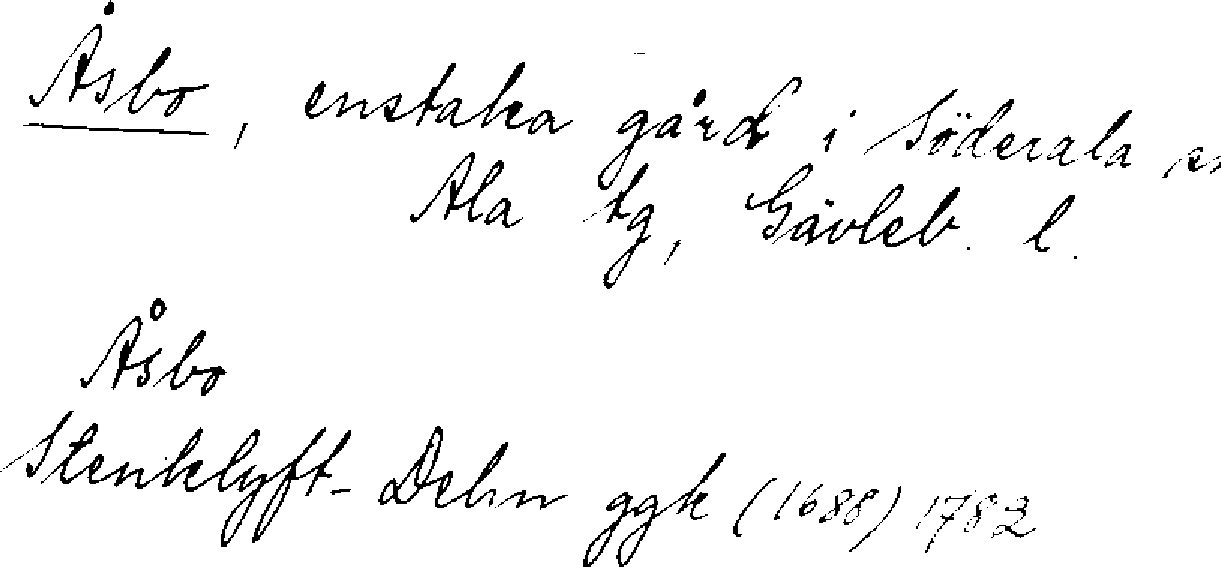 Åsbo, enstaka gård i Söderala sn
Ala tg, Gävleb. l.
Åsbo
Stenklyft-Dehn ggk (1688) 1782